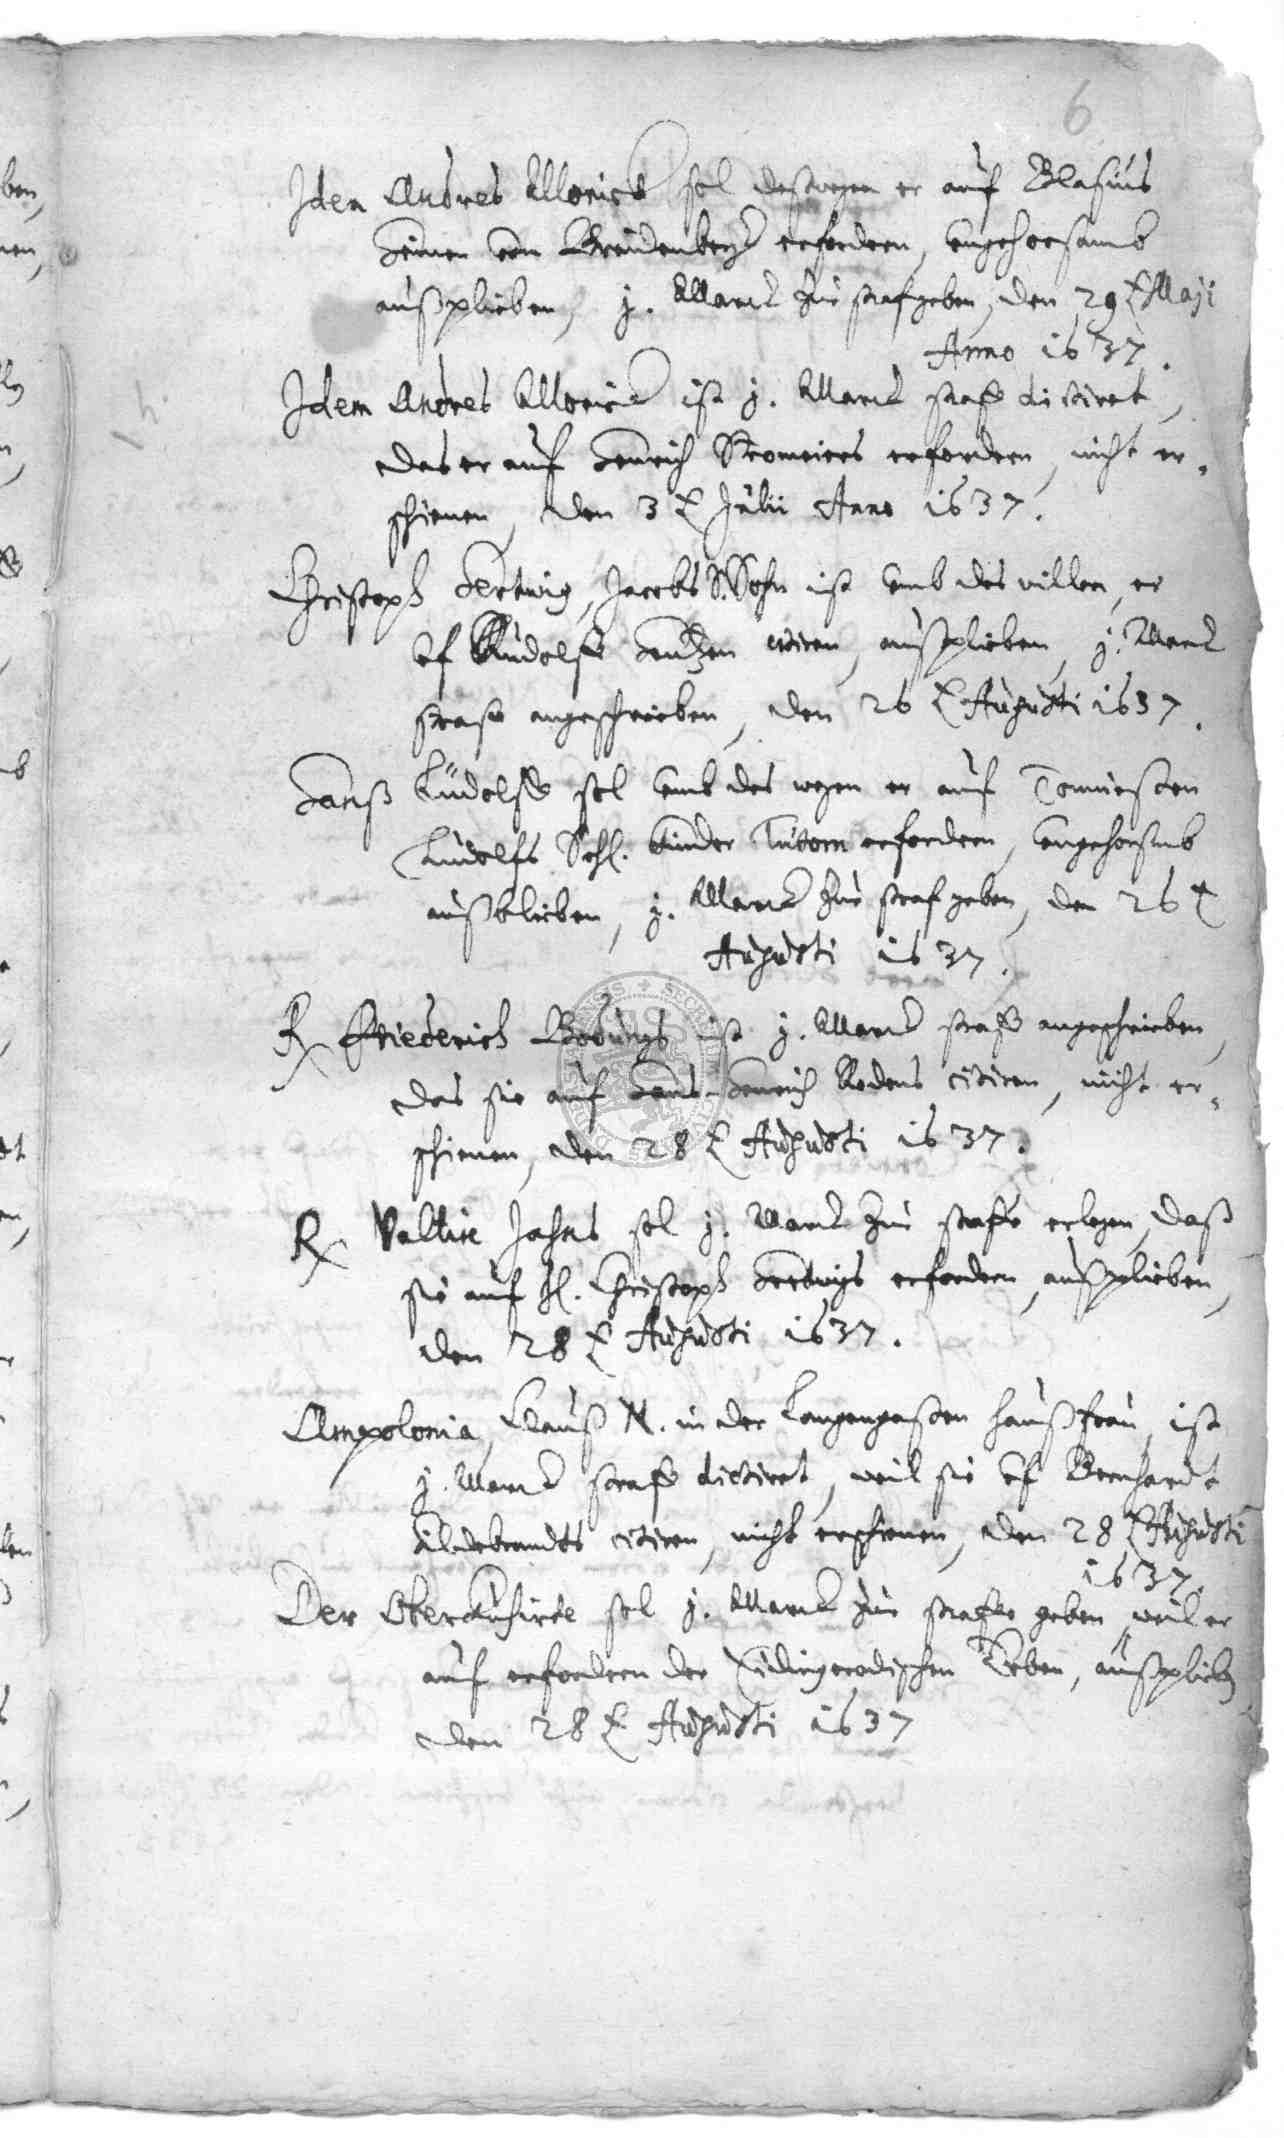 6
Idem Andres Morich sol deswegen er auf Blasius
Heinen von Breidenbergs erfordern, ungehorsamb
außplieben, j. Marck zur straf geben, den 29 Maji
Anno 1637.
Idem Andres Morich ist j. Marck straffe dictiret,
das er auf Henrich Stromeiers erfordern, nicht er-
schienen, den 3 Julii Anno 1637.
Christoph Hertwig, Jacobs S. Sohn ist umb des willen, er
uf Rudolff citiren, außplieben, j. Marck
straffe angeschrieben, den 26 Augusti 1637.
Hanß Lüdolff sol umb des wegen er auf
Ludolfs Sehl. Kinder Tutorn erfordern, ungehorsamb
außblieben, j. Marck zur straf geben, den 26
Augusti 1637.
Friederich ist j. Marck straffe angeschrieben,
das sie auf Hans-Henrich Rodens citiren, nicht er-
schienen, den 28 Augusti 1637.
Valtin Jahns sol j. Marck zur straffe erlegen, daß
sie auf H. Christoph Hertwigs erfordern, außplieben,
den 28 Augusti 1637.
Ampolonia, Clauß N. in der Langengaßen haußfrau, ist
j. Marck straffe dictiret, weil sie uf Bernhardt
Hildebrandts citiren, nicht erschienen, den 28 Augusti
1637.
Der Oberkuhirte sol j. Marck zur straffe geben, weil er
auf erfordern der Erben, außplieben
den 28 Augusti 1637